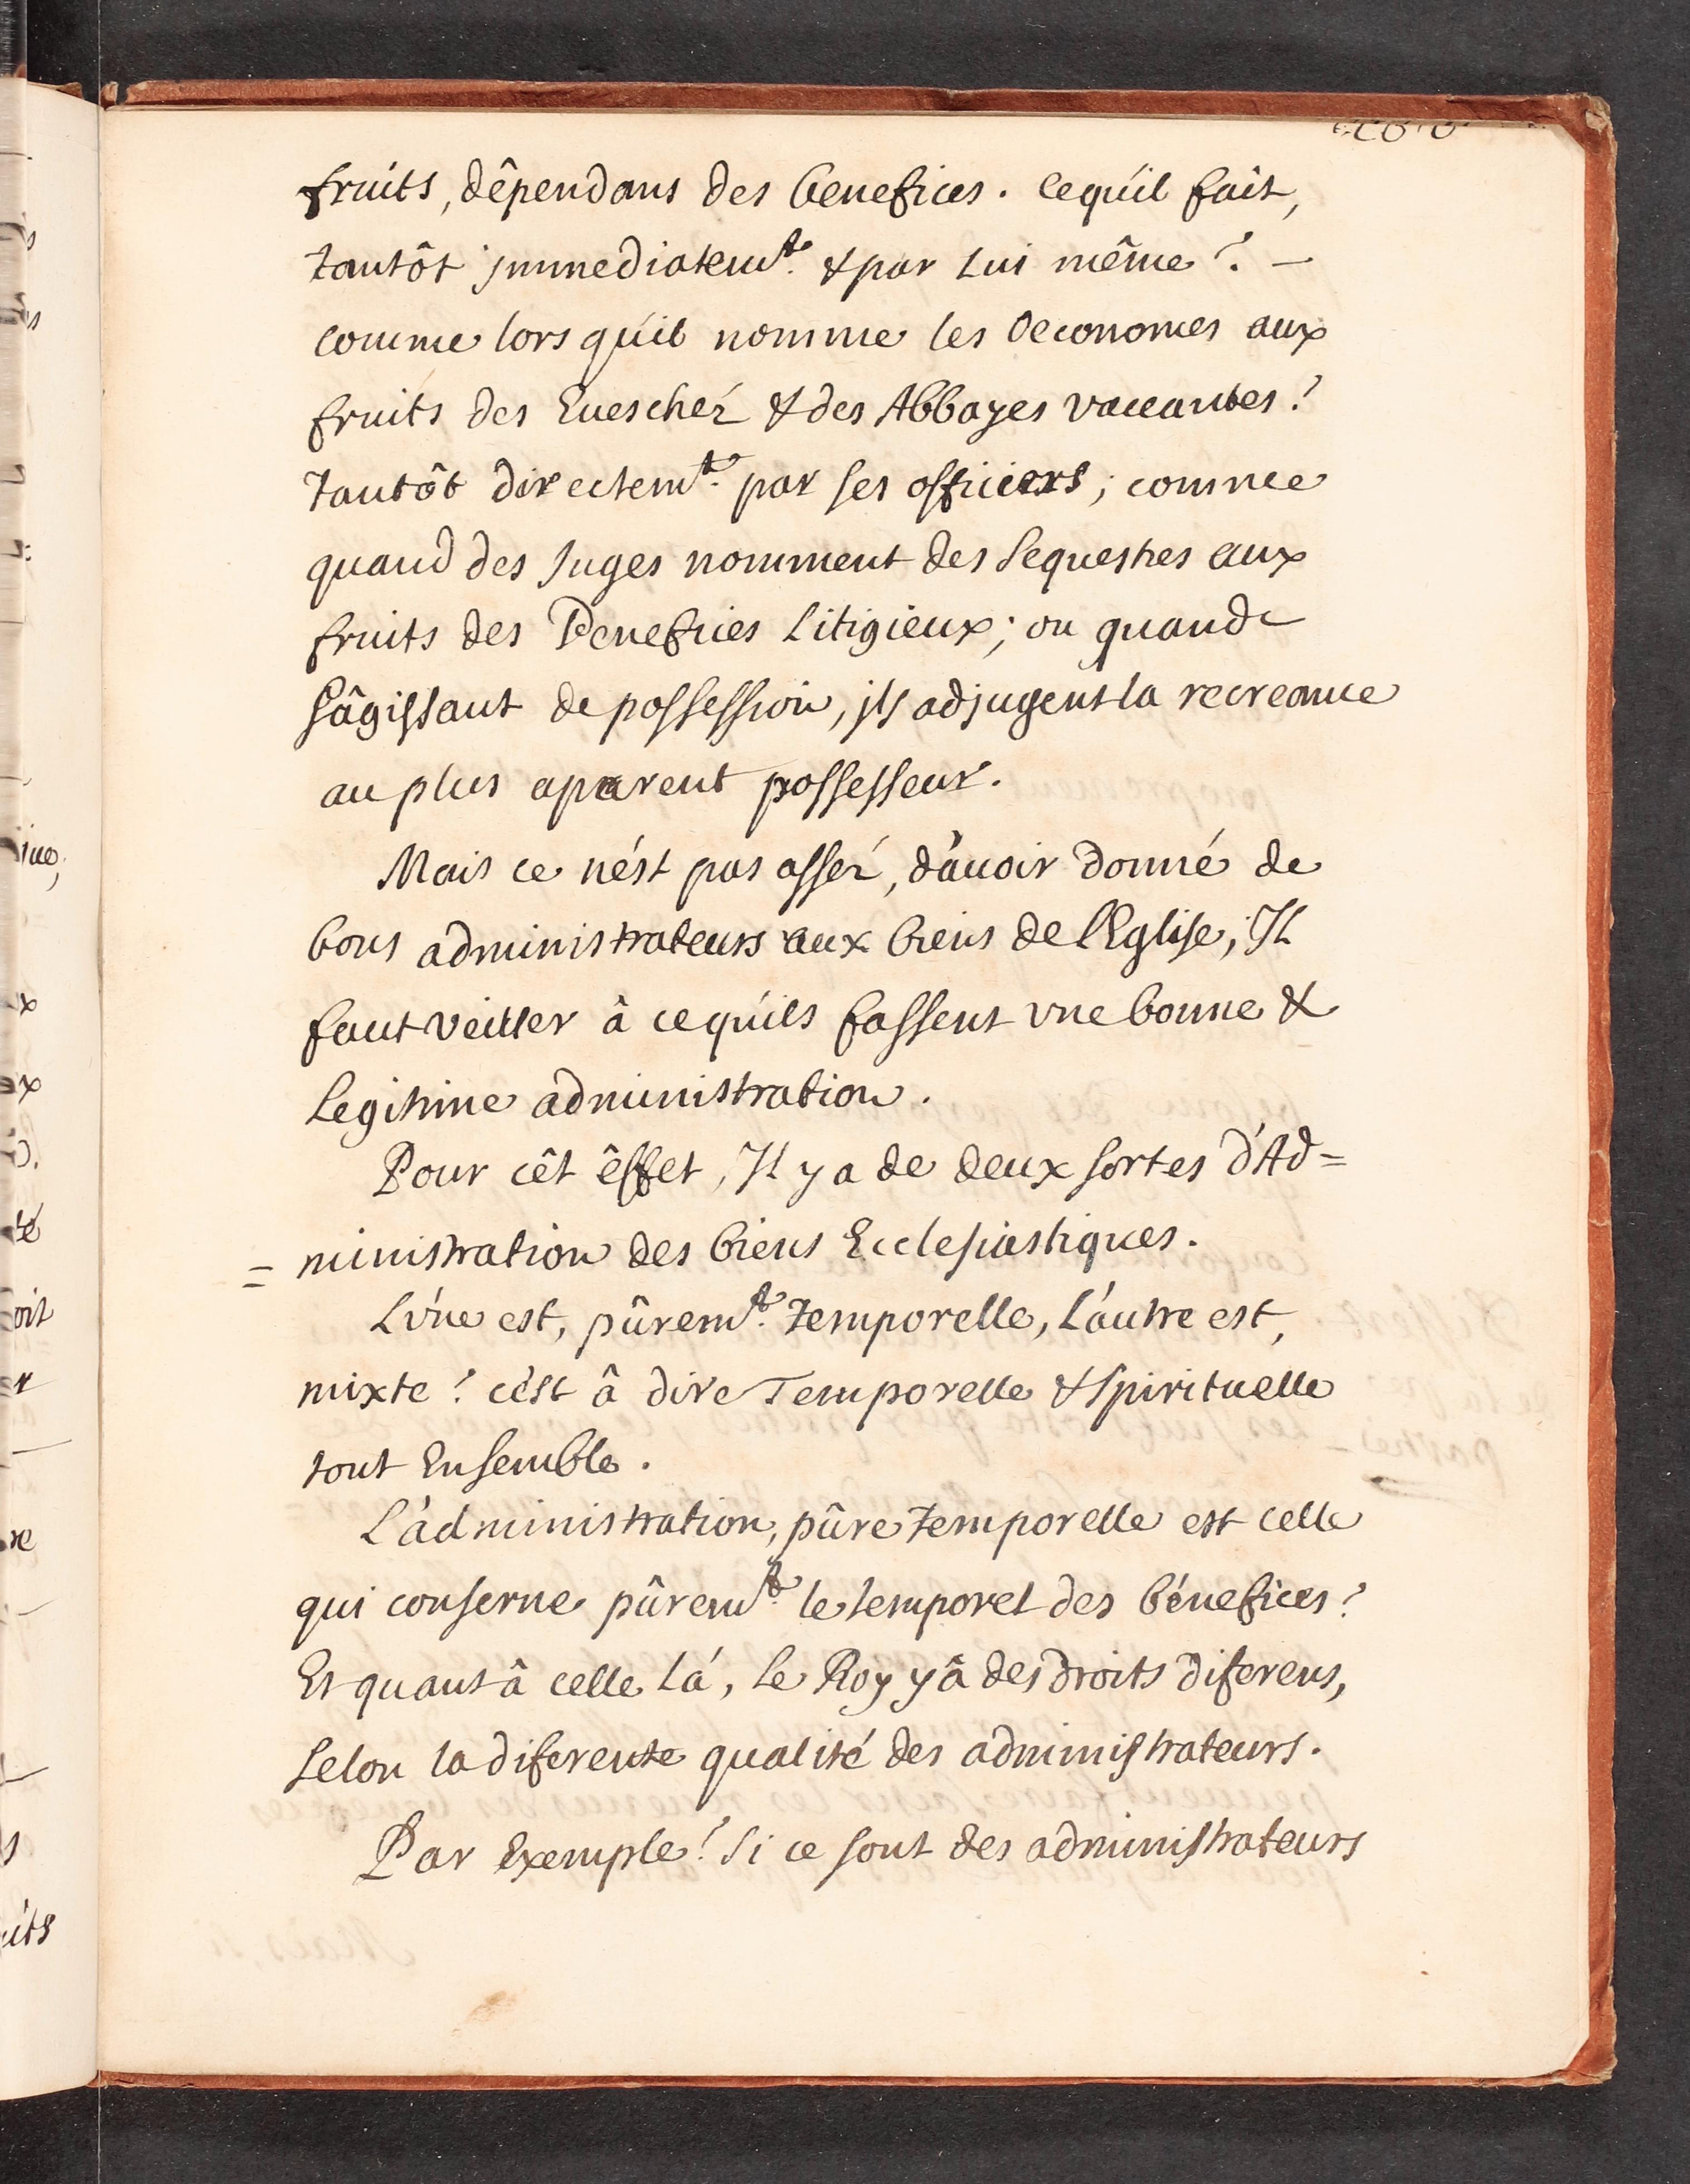 fruits, dêpendans des benefices. ce qu'il fait,
tantôt jmmediatemt. & par Lui même? –
comme lors qu'il nomme les Oeconomes aux
fruits des Eueschéz & des Abbayes vaccantes?
Tantôt directemt. par ses officiers; comme
quand des Juges nomment des sequestres aux
fruits des Benefices Litigieux; ou quand
s'âgissant de possession, jls adjugent la recreance
au plus aparent possesseur.
Mais ce n'ést pas asséz, d'âuoir donné de
bons administrateurs aux biens de l'Eglise; Jl
faut veiller â ce qu'ils fassent vne bonne &
Legitime administration.
Pour cêt êffet, Jl y a de deux sortes d'Ad=
=ministration des biens Ecclesiastiques.
L'vne est, pûremt. Temporelle, L'autre est,
mixte? c'èst â dire Temporelle & spirituelle
tout Ensemble.
L'âdministration, pûre Temporelle est celle
qui conserne pûremt. le temporel des bénefices?
Et quant â celle Lá, Le Roy y â des droits diferens,
selon la diferente qualité des administrateurs.
Par Exemple? Si ce sont des administrateurs